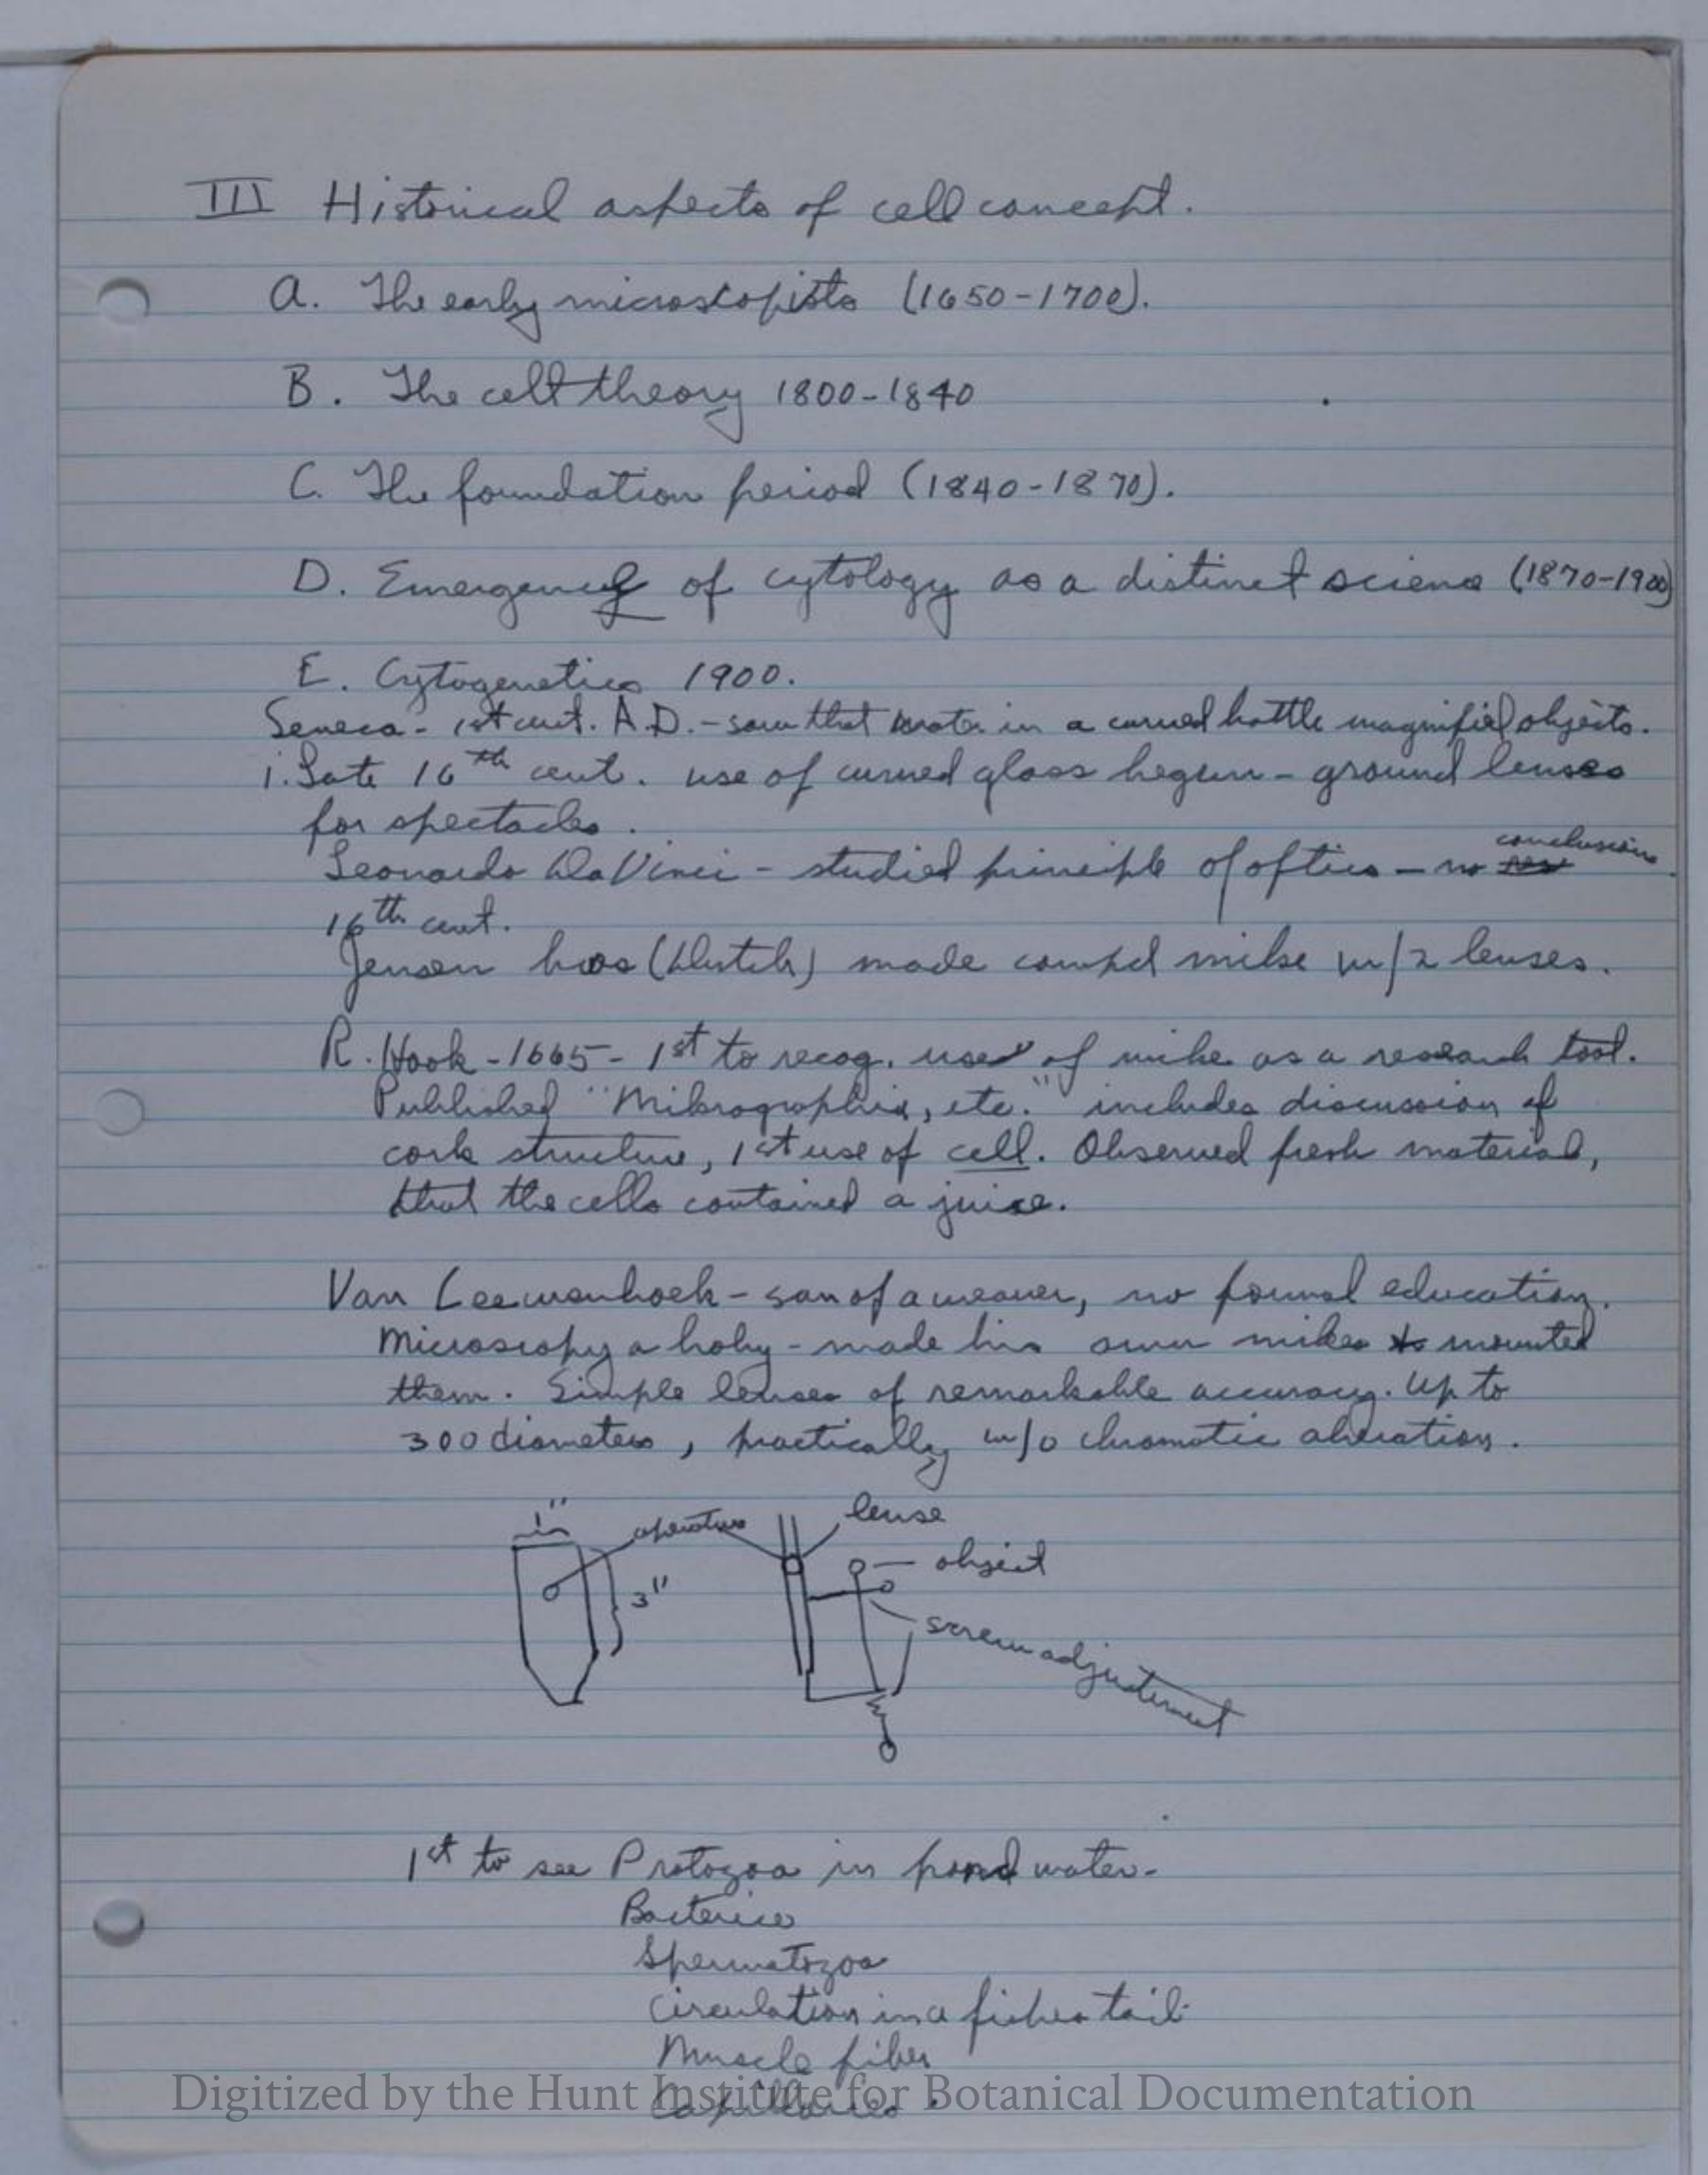 III Historical aspects of cell concept.
A. The early microscopists (1650-1700).
B. The cell theory 1800-1840
C. The foundation period (1840-1870).
D. Emergency of cytology as a distinct science (1870-1900)
E. Cytogenetics 1900.
Seneca - 1st cent. A.D. - saw that water in a curved bottle magnified objects.
1. Late 16th cent. use of curved glass begun - ground lenses
for spectacles.
conclusions
Leonardo DaVinci - studied principle of optics - no
16th cent.
Jensen bros (Dutch) made compd mike w/2 lenses.
R. Hook - 1665 - 1st to recog. use of mike as a research tool.
Published "Mikrographia, etc." includes discussion of
cork structure, 1st use of cell. Observed fresh material,
that the cells contained a juice.
Van Leewenhoek - son of a weaver, no formal education.
Microscopy a hoby - made his own mikes & mounted
them. Simple lenses of remarkable accuracy. Up to
300 diameters, practically w/o chromatic abberation.
1" aperature lense
object
3"
screw adjustment
1st to see Protozoa in pond water-
Bacteria
Spermatozoa
Circulation in a fishes tail
Muscle fiber
Capillaries.
Digitized by the Hunt Institute for Botanical Documentation